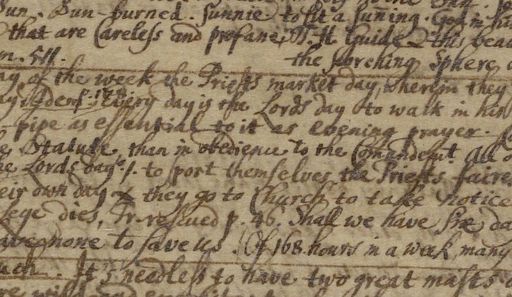 Sun. Sun-burned. Sunnie to sit a suning. God in hi
that are Careless and profane. Guide this
the scorching sphere
m. 511.
ay of the week the Priests market day, wherein they
ay. idem p. 178. Every day is the Lords day to walk in him
pipe as essential to it as evening prayer.
Statute, than in obedience to the Comandemt All o
e Lords day. to sport themselves, the Priests sacre
eir own day & they go to Church to take notice
lege dies, Tr. rescued p. 46. Shall we have six da
ave none to save us. Of 168. hours in a week many
It's needless to have two great masts